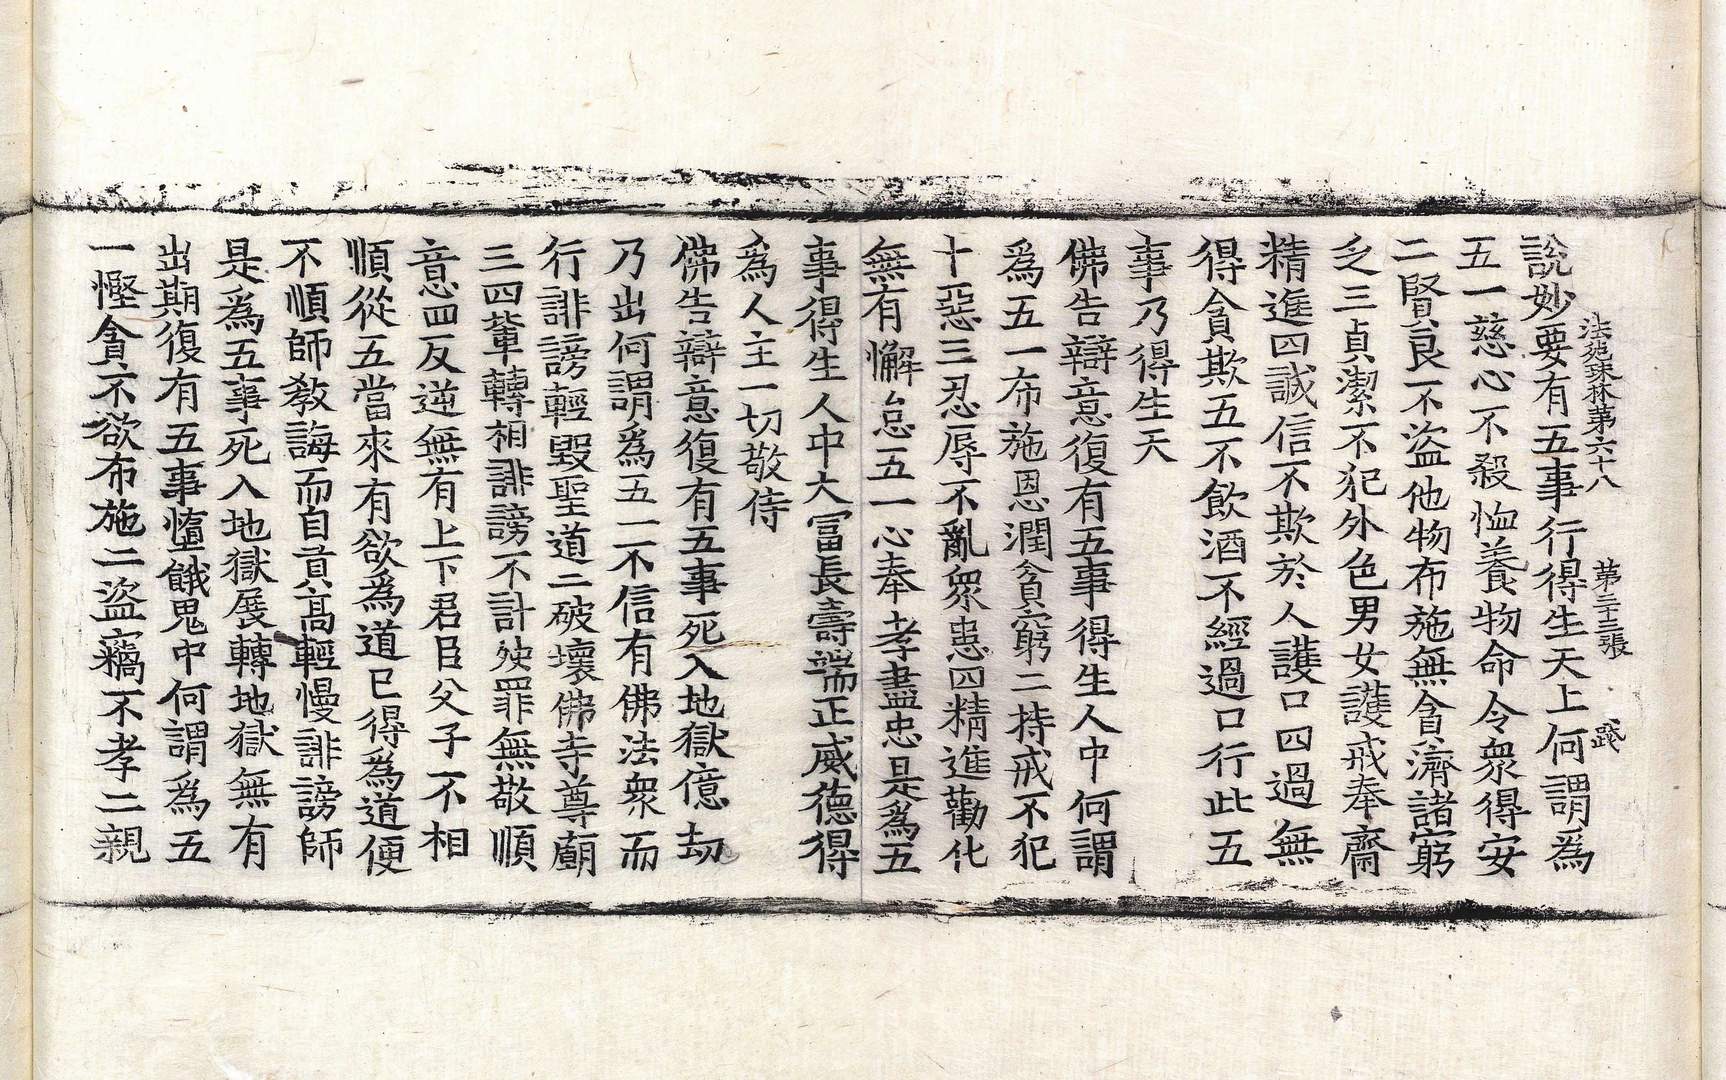 法苑珠林第六十八 第二十三張
說妙要有五事行得生天上何謂爲
五一慈心不殺恤養物命令衆得安
二賢良不盜他物布施無貪濟諸窮
乏三貞潔不犯外色男女護戒奉齋
精進四誠信不欺於人護口四過無
得貪欺五不飮酒不經過口行此五
事乃得生天
佛告辯意復有五事得生人中何謂
爲五一布施恩潤貧窮二持戒不犯
十惡三忍辱不亂衆患四精進勸化
無有懈怠五一心奉孝盡忠是爲五
事得生人中大冨長壽端正威德得
爲人主一切敬侍
佛告辯意復有五事死入地獄億劫
乃出何謂爲五一不信有佛法衆而
行誹謗輕毀聖道二破壞佛寺尊廟
三四輩轉相誹謗不計殃罪無敬順
意四反逆無有上下君臣父子不相
順從五當來有欲爲道已得爲道便
不順師教誨而自貢高輕慢誹謗師
是爲五事死入地獄展轉地獄無有
出期復有五事墮餓鬼中何謂爲五
一慳貪不欲布施二盜竊不孝二親